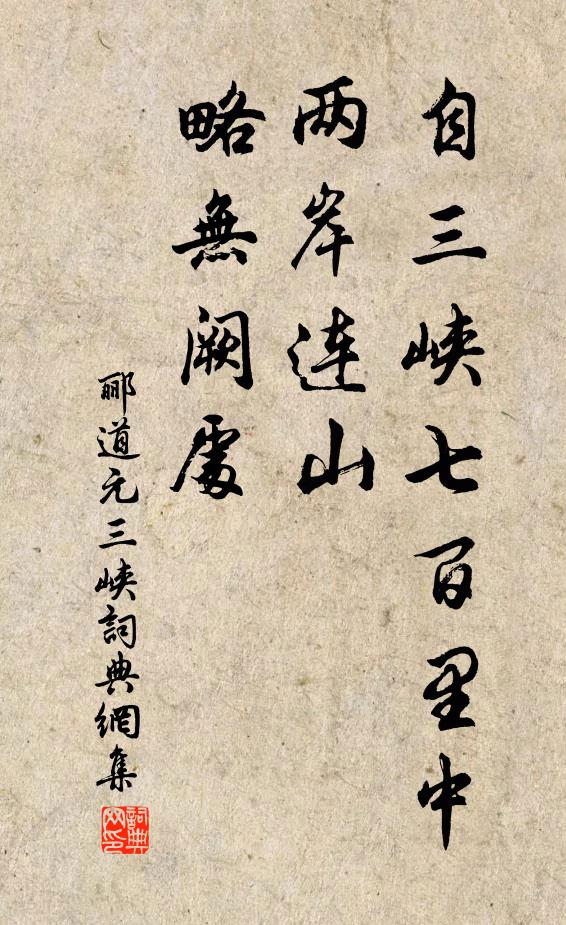 自三峡七百里中
两岸連山
略無阙處
郦道元三峡詞典網集
詞典网印